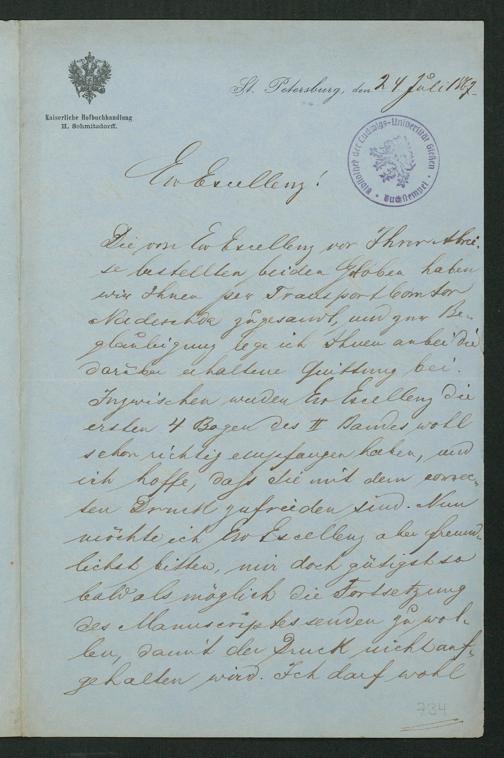 Kaiserliche Hofbuchhandlung
H. Schmitzdorff.
St. Petersburg, den 24 Juli 1867
Bibliothek der Ludwigs-Universität Gießen
Buchstempel
Ew Excellenz!
Die von Ew Excellenz vor Ihrer Abrei-
se bestellten beiden Globen haben
wir Ihnen per Transport Comtor
zugesandt, und zur Be-
glaubigung lege ich Ihnen anbei die
darüber erhaltene Quittung bei.
Inzwischen werden Ew Excellenz die
ersten 4 Bogen des II Bandes wohl
schon richtig empfangen haben, und
ich hoffe, daß Sie mit dem correc-
ten Druck zufrieden sind. Nun
möchte ich Ew Excellenz aber freund-
lichst bitten, mir doch gütigst so
bald als möglich die Fortsetzung
des Manuscriptes senden zu wol-
len, damit der Druck nicht auf-
gehalten wird. Ich darf wohl
734